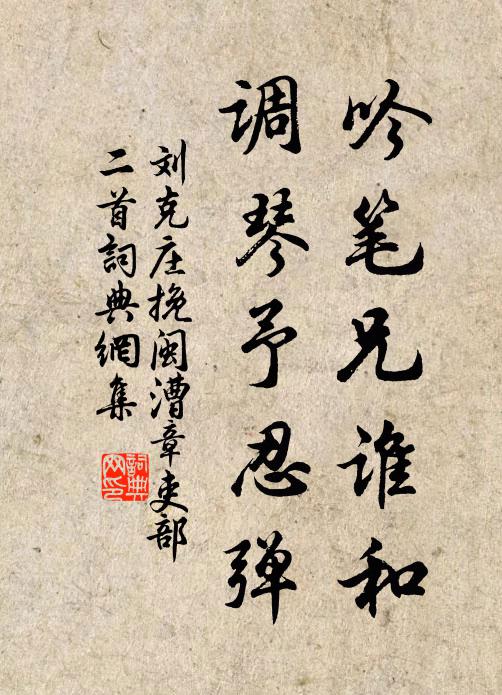 吟笔兄谁和
调琴予忍弹
刘克庄挽闽漕章吏部
二首詞典網集
詞典
网印